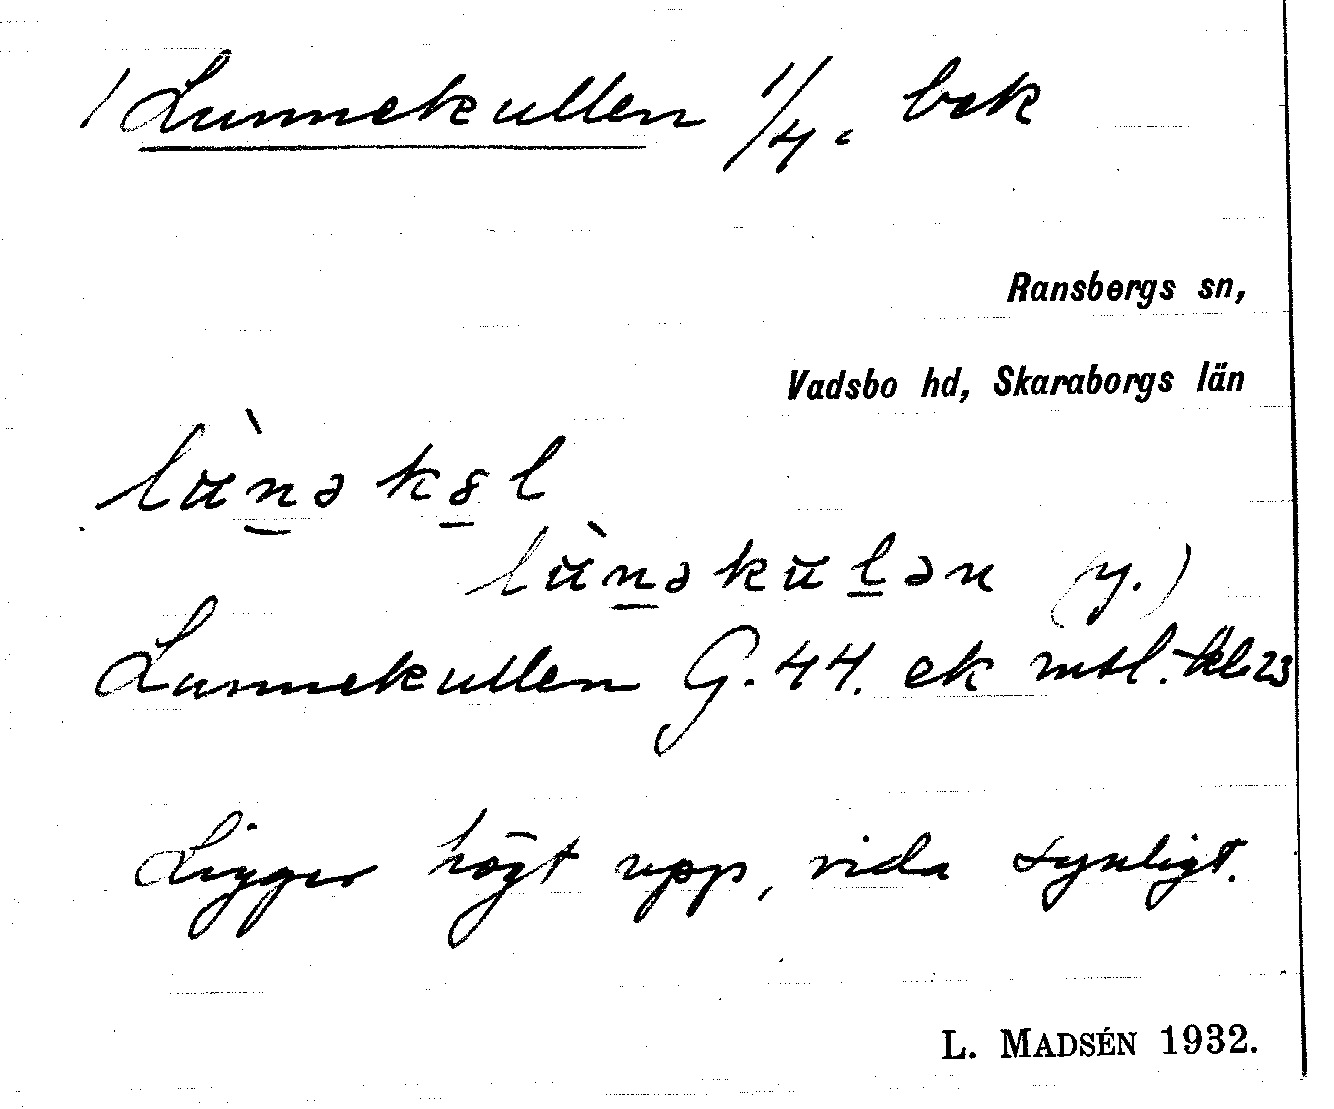 / Lunnekullen 1/4. bek
Ransbergs sn,
Vadsbo hd, Skaraborgs län
lùnəkəl
lùnəkulən (y.)
Lunnekullen G. 44. ek mtl.
Ligger högt upp, vida synligt.
L. MADSÉN 1932.